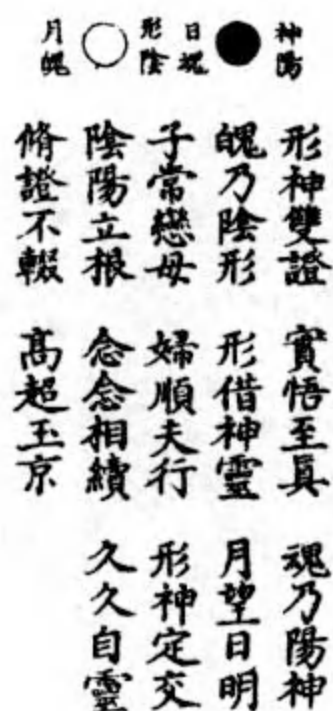 神陽
日魂
形陰
月魄
形神雙證　實悟至真　魂乃陽神
魄乃陰形　形借神靈　月望日明
子常戀母　婦順夫行　形神定交
陰陽立根　念念相續　久久自靈
脩證不輟　高超玉京